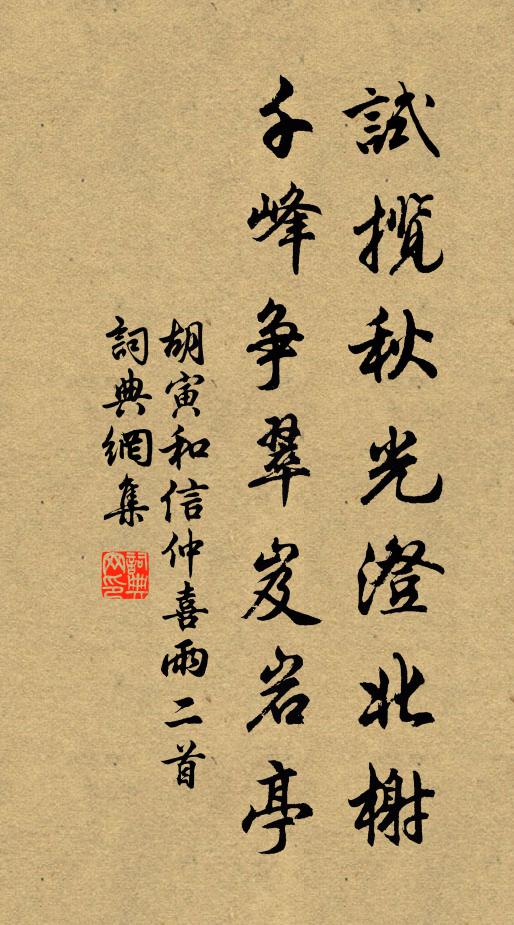 試攬秋光澄北榭
千峰争翠岌岩亭
胡寅和信仲喜雨二首
詞典網集
詞典
网印